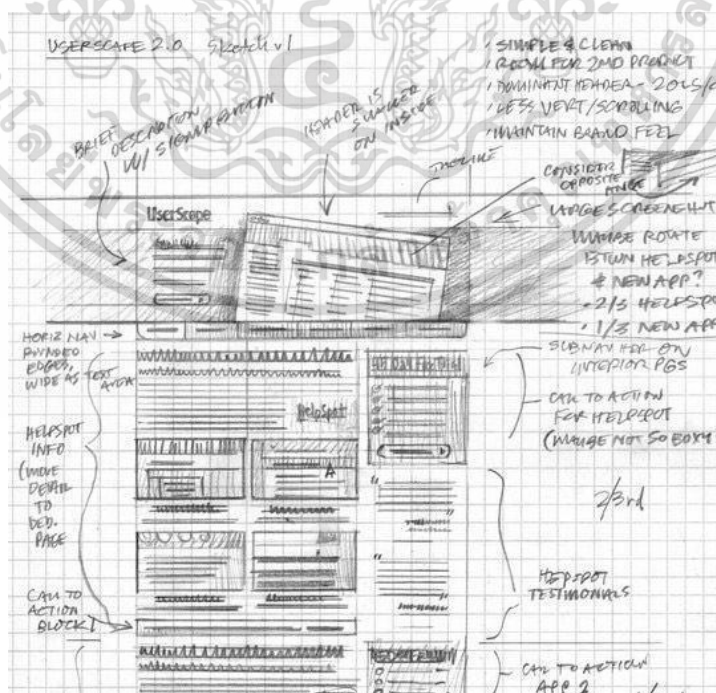 USERSCAPE 2.0 Sketch v1
/ SIMPLE & CLEAN
/ ROOM FOR 2ND PRODUCT
/ DOMINANT HEADER -
/ LESS VERT/SCROLLING
/ MAINTAIN BRAND FEEL
BRIEF DESCRIPTION
W/ SIGNUP BUTTON
HEADER IS
SMALLER
ON INSIDE
TAGLINE
CONSIDER
OPPOSITE
ANGLE
LARGE SCREENSHOT
MAYBE ROTATE
BTWN HELPSPOT
& NEW APP?
• 2/3 HELPSPOT
• 1/3 NEW APP
UserScape
HORIZ NAV
ROUNDED
EDGES,
WIDE AS TEXT
AREA
SUBNAV HDR ON
INTERIOR PGS
CALL TO ACTION
FOR HELPSPOT
(MAYBE NOT SO BOXY
HelpSpot
HELPSPOT
INFO
(MOVE
DETAIL
TO
DED.
PAGE
A
2/3rd
HELPSPOT
TESTIMONIALS
CALL TO
ACTION
BLOCK
CALL TO ACTION
APP 2